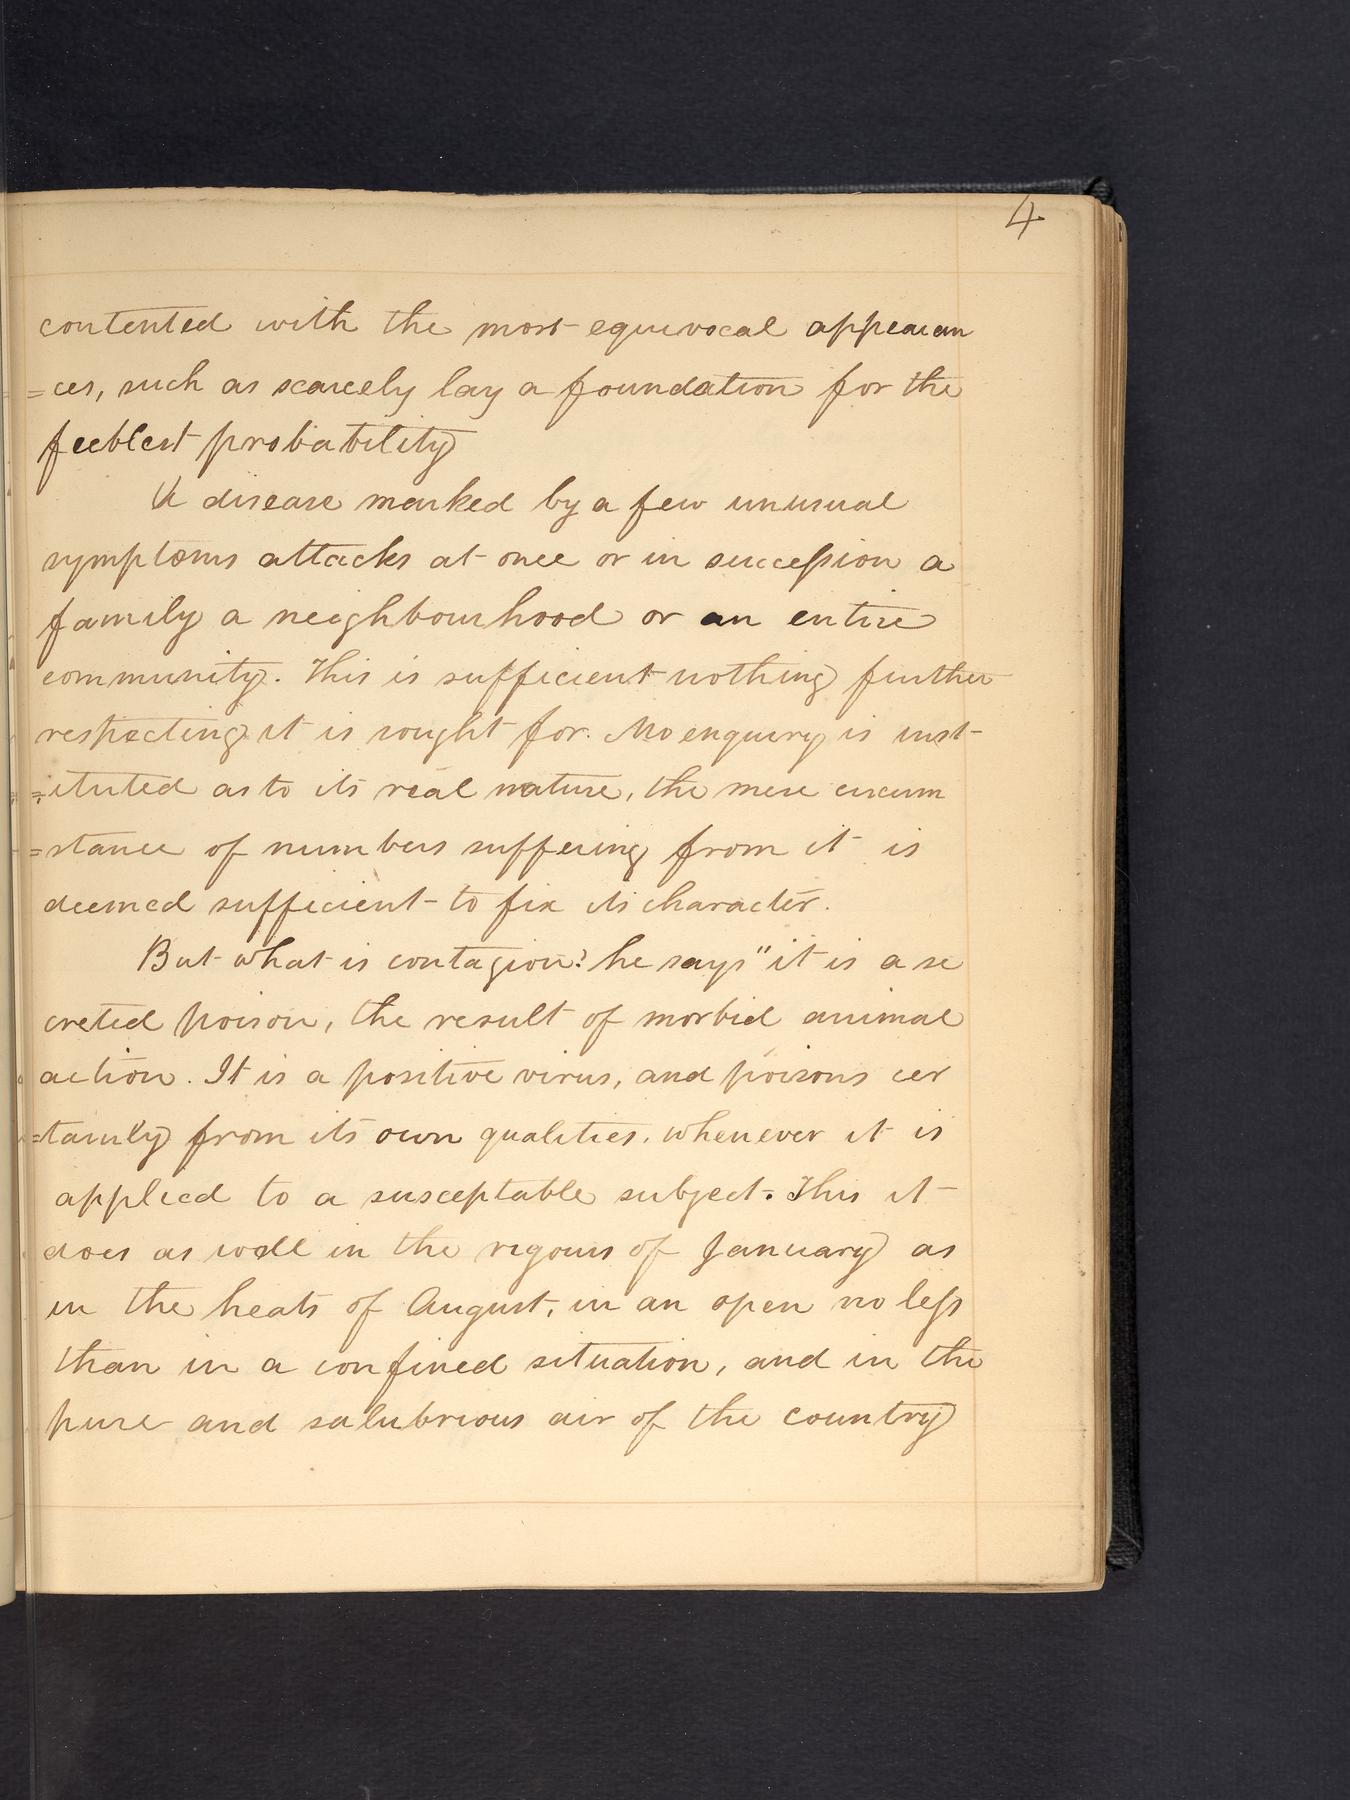 4
contented with the most equivocal appearan
=ces, such as scarcely lay a foundation for the
feeblest probability
A disease marked by a few unusual
symptoms attacks at once or in succession a
family a neighbourhood or an entire
community. This is sufficient nothing further
respecting it is sought for. No enquiry is inst-
=ituted as to its real nature, the mere circum
=stance of numbers suffering from it is
deemed sufficient to fix its character.
But what is contagion? he says "it is a se
creted poison, the result of morbid animal
action. It is a positive virus, and poisons cer
=tainly from its own qualities, whenever it is
applied to a susceptable subject. This it
does as well in the rigours of January as
in the heats of August, in an open no less
than in a confined situation, and in the
pure and salubrious air of the country